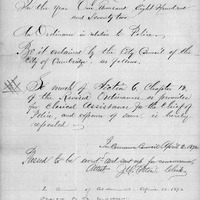 In the Year One thousand Eight Hundred
and Seventy two.
An Ordinance in relation to Police.
Be it ordained by the City Council of the
City of Cambridge, as follows.
So much of Section 6, Chapter 18,
of the Revised Ordinances, as provides
for clerical Assistance for the Chief of
Police, and expense of same, is hereby
repealed.
In Common Council April 3, 1872
Passed to be and sent up for concurrence
Attest Clerk.
In April 1872